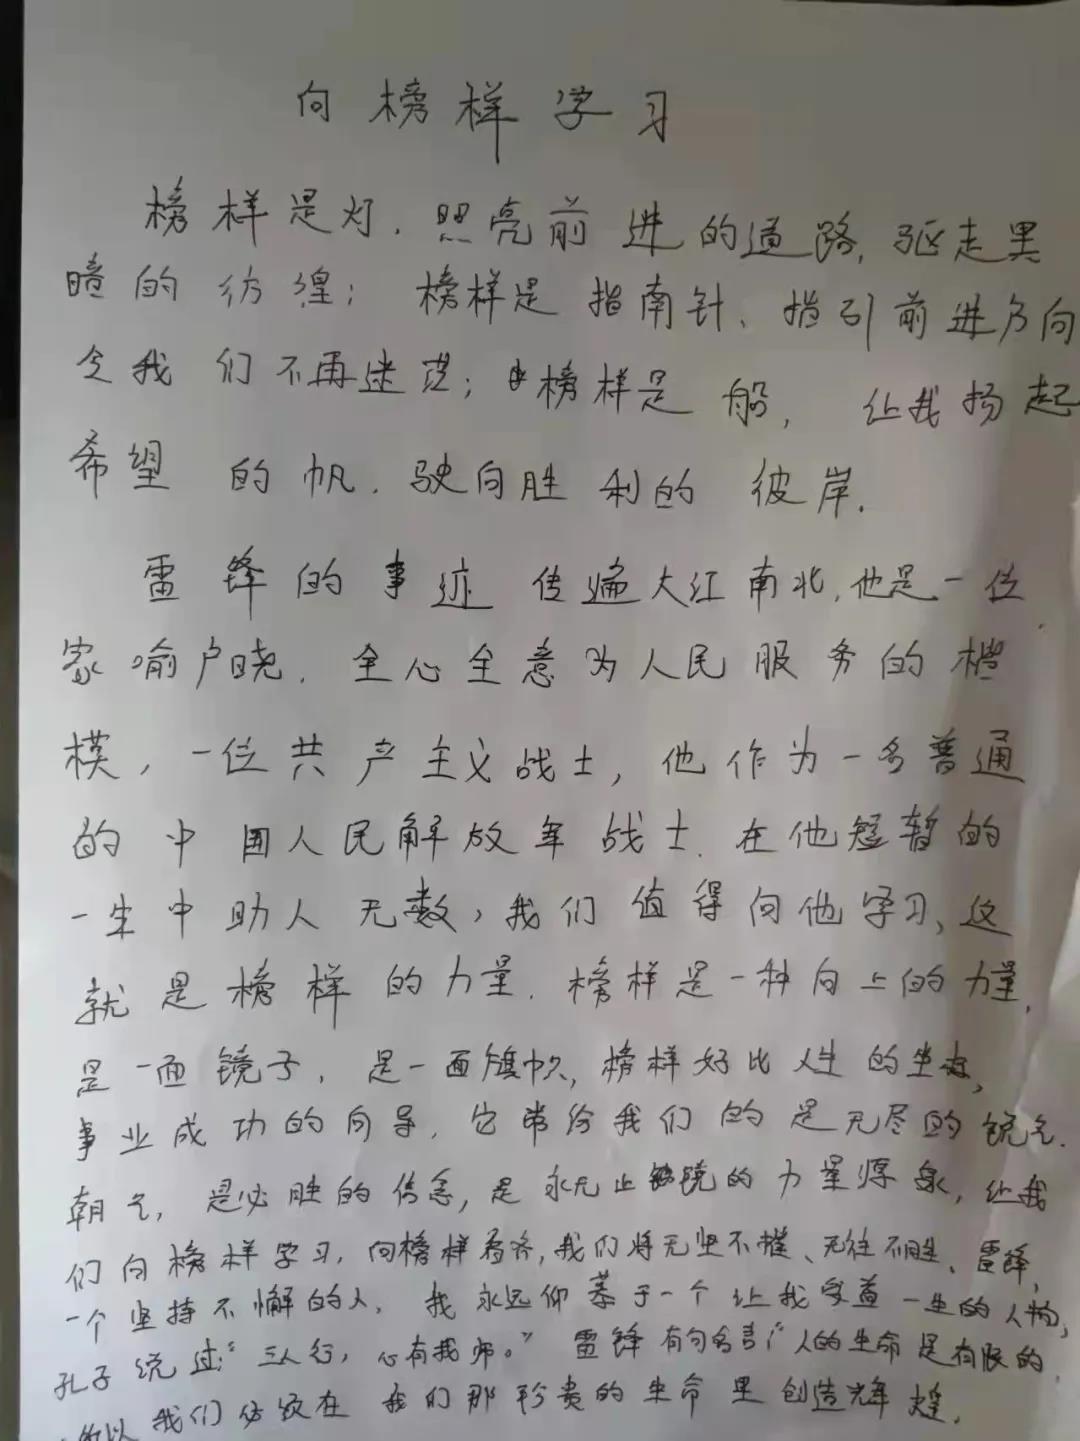 向榜样学习
榜样是灯，照亮前进的道路，驱走黑
暗的彷徨；榜样是指南针、指引前进方向
令我们不再迷茫；榜样是船，让我扬起
希望的帆，驶向胜利的彼岸。
雷锋的事迹传遍大江南北，他是一位
家喻户晓，全心全意为人民服务的楷
模，一位共产主义战士，他作为一名普通
的中国人民解放军战士，在他短暂的
一生中助人无数，我们值得向他学习、这
就是榜样的力量，榜样是一种向上的力量，
是一面镜子，是一面旗帜，榜样好比人生的坐标，
事业成功的向导，它带给我们的是无尽的锐气、
朝气，是必胜的信念，是永无止境的力量源泉，让我
们向榜样学习，向榜样看齐，我们将无坚不摧、无往不胜、雷锋，
一个坚持不懈的人，我永远仰慕于一个让我学着一生的人物，
孔子说过：“三人行，必有我师。”雷锋有句名言：“人的生命是有限的，
所以我们必须在我们那珍贵的生命里创造辉煌，